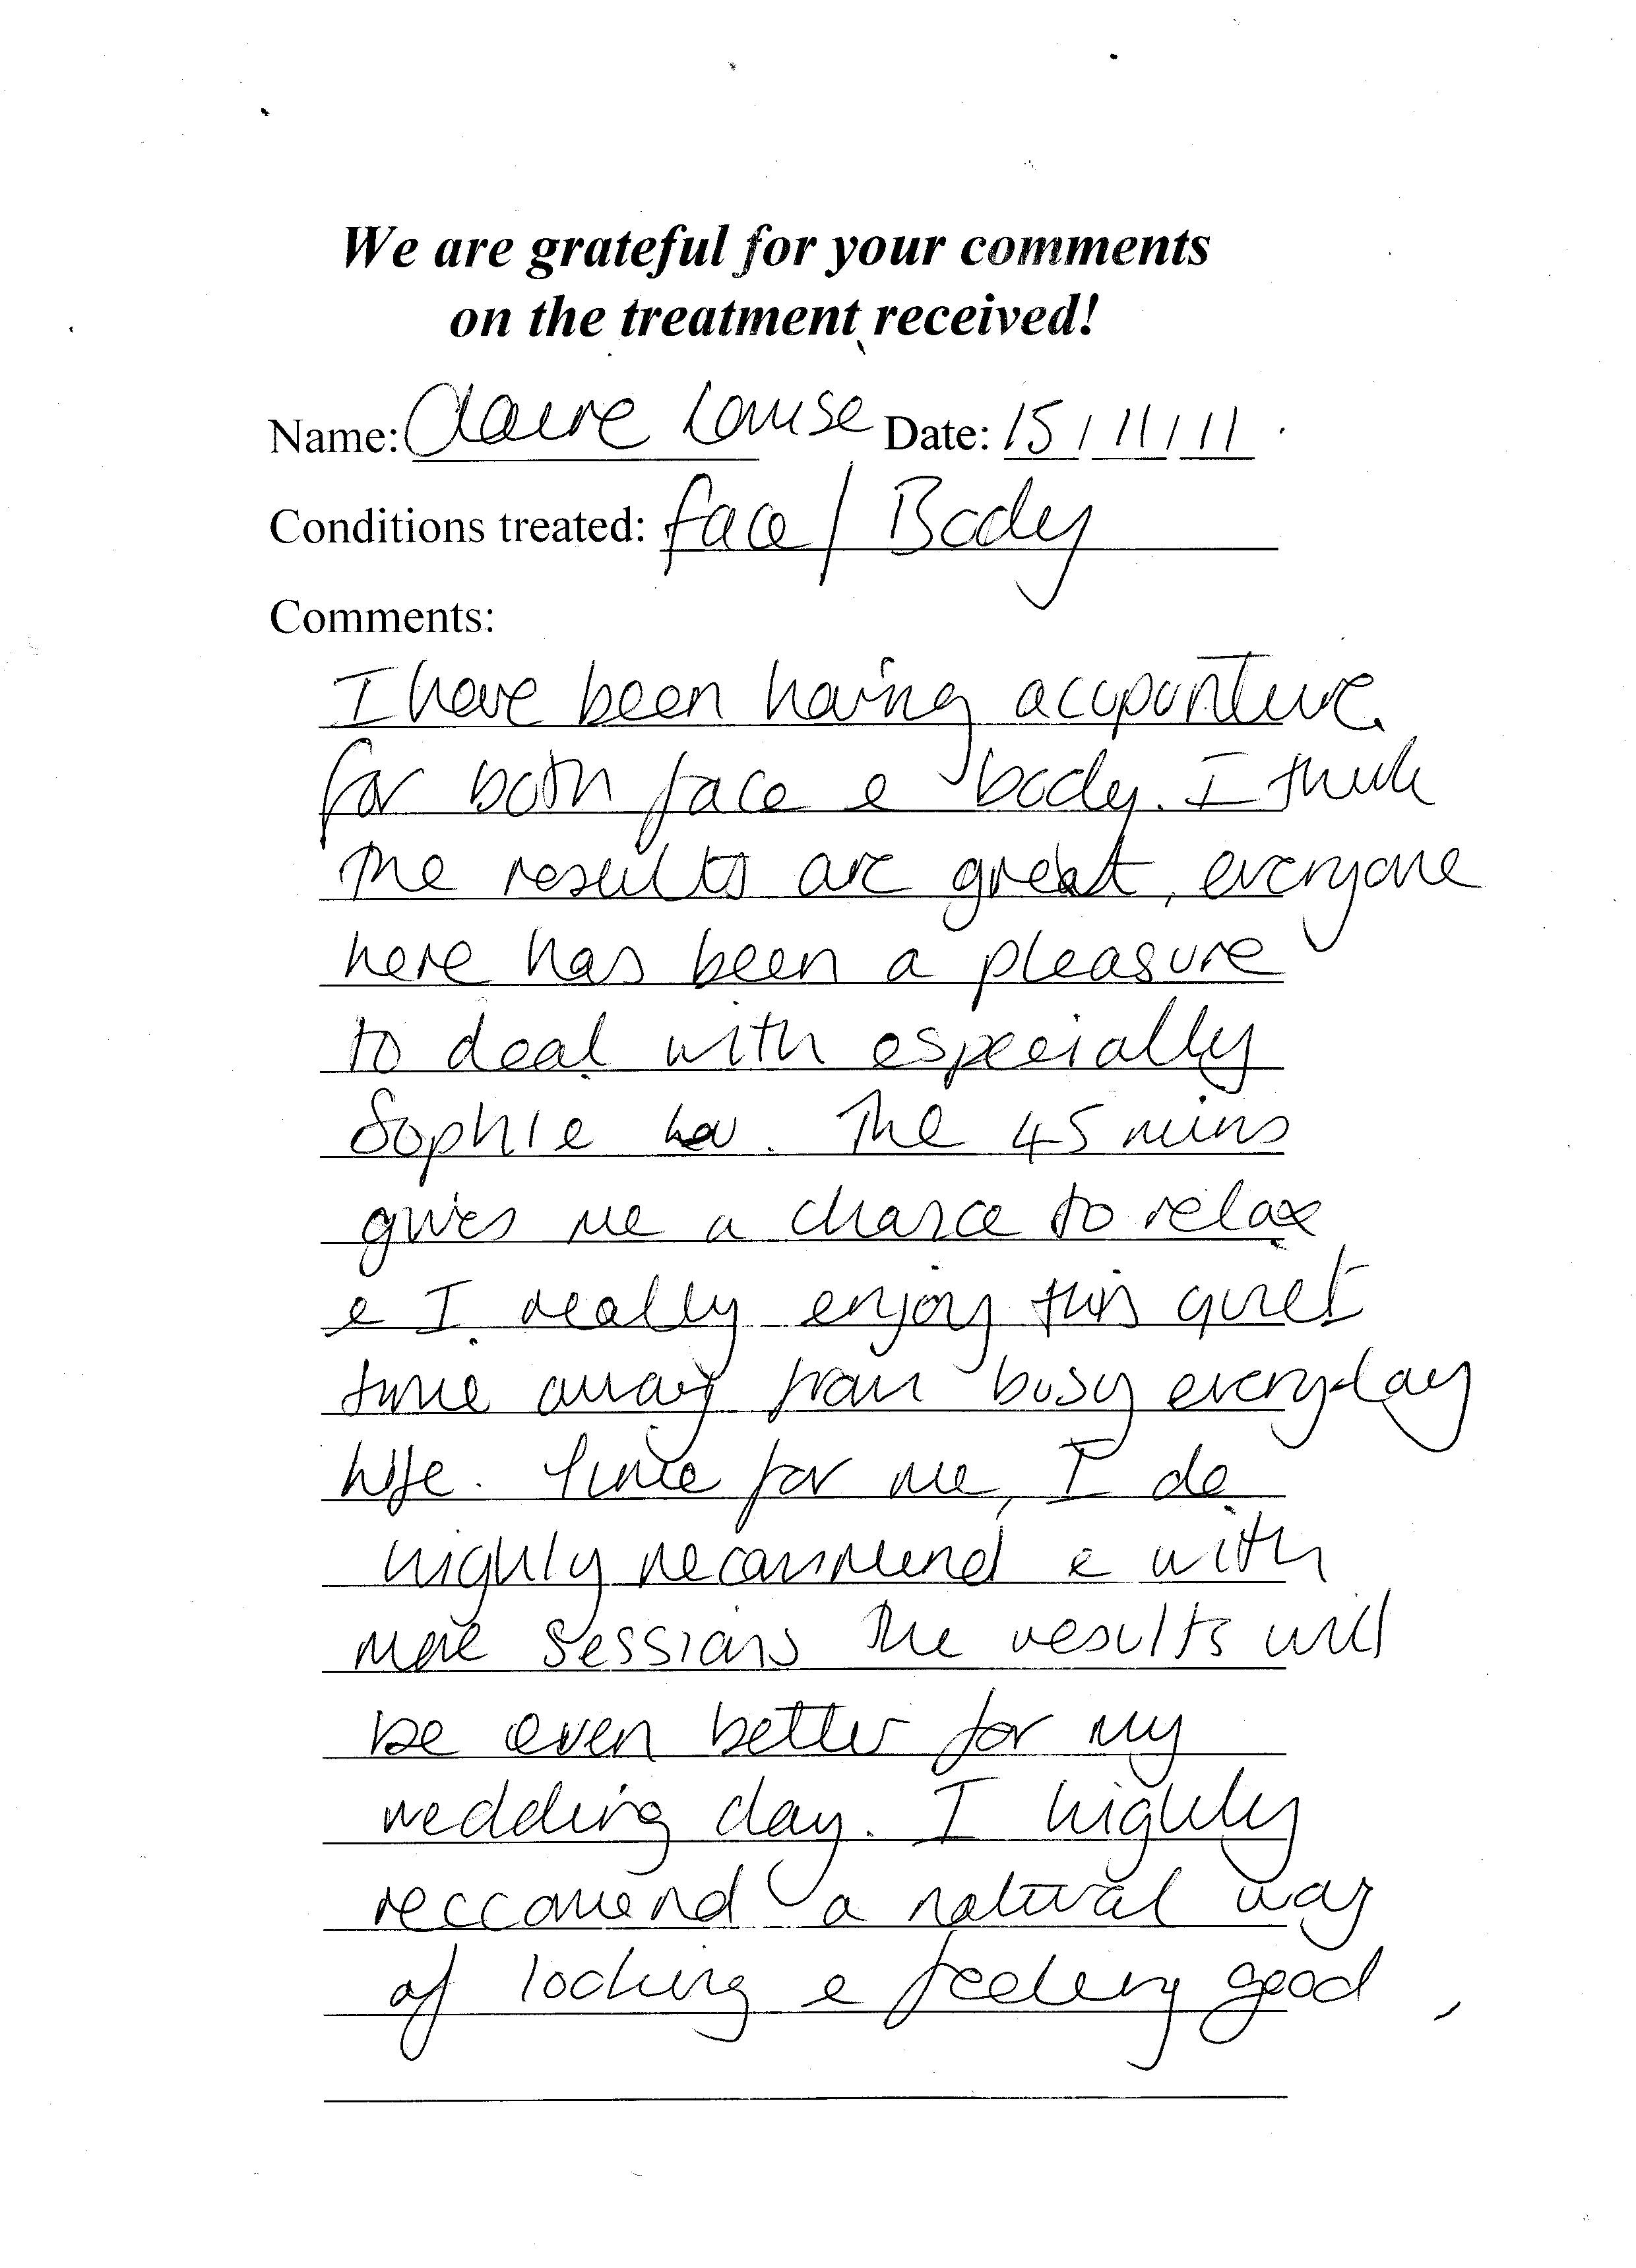 We are grateful for your comments
on the treatment received!
Name: Claire Louise Date: 15/11/11.
Conditions treated: face/ Body
Comments:
I have been having acupunture
for both face & body. I think
the results are great, everyone
here has been a pleasure
to deal with especially
Sophie. The 45 mins
gives me a chance to relax
& I really enjoy this quiet
time away from busy everyday
life. Time for me, I do
highly recommend & with
more sessions the results will
be even better for my
wedding day. I highly
reccomend a natural way
of looking & feeling good